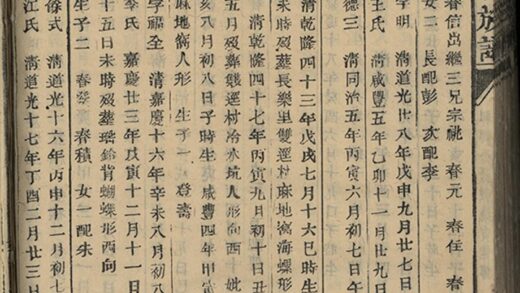 族譜
春信出繼三兄宗祧 春元 春任 春
女二 長配彭子 次配李
字明 清道光廿八年戊申九月廿七日
王氏 清咸豐五年乙卯十一月廿九日
德三 清同治五年丙寅六月初七日
清乾隆四十三年戊戌七月十六巳時生
五月歿葬長樂里雙逕村麻地窩海螺形
清乾隆四十七年丙寅九月初十日丑
五月歿葬雙逕村冷水坑人形向西 妣
亥八月初八日子時生 咸豐四年甲寅
麻地窩人形 生子一 發濤
字福全 清嘉慶十六年辛未八月初
李氏 嘉慶廿三年戊寅十二月十一日
十五日未時歿葬瑤鈴背蝴蝶形西向
生子二 春發 春積 女一配朱
俊式 清道光十六年丙申十二月初七
江氏 清道光十七年丁酉二月廿三日